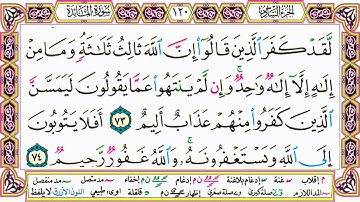 الجزء السادس ١٢٠ سورة المائدة
لَقَدْ كَفَرَ الَّذِينَ قَالُوٓا۟ إِنَّ اللَّهَ ثَالِثُ ثَلَاثَةٍ وَمَا مِنْ
إِلَٰهٍ إِلَّآ إِلَٰهٌ وَاحِدٌ وَإِن لَّمْ يَنتَهُوا۟ عَمَّا يَقُولُونَ لَيَمَسَّنَّ
الَّذِينَ كَفَرُوا۟ مِنْهُمْ عَذَابٌ أَلِيمٌ ٧٣ أَفَلَا يَتُوبُونَ
إِلَى اللَّهِ وَيَسْتَغْفِرُونَهُ وَاللَّهُ غَفُورٌ رَّحِيمٌ ٧٤